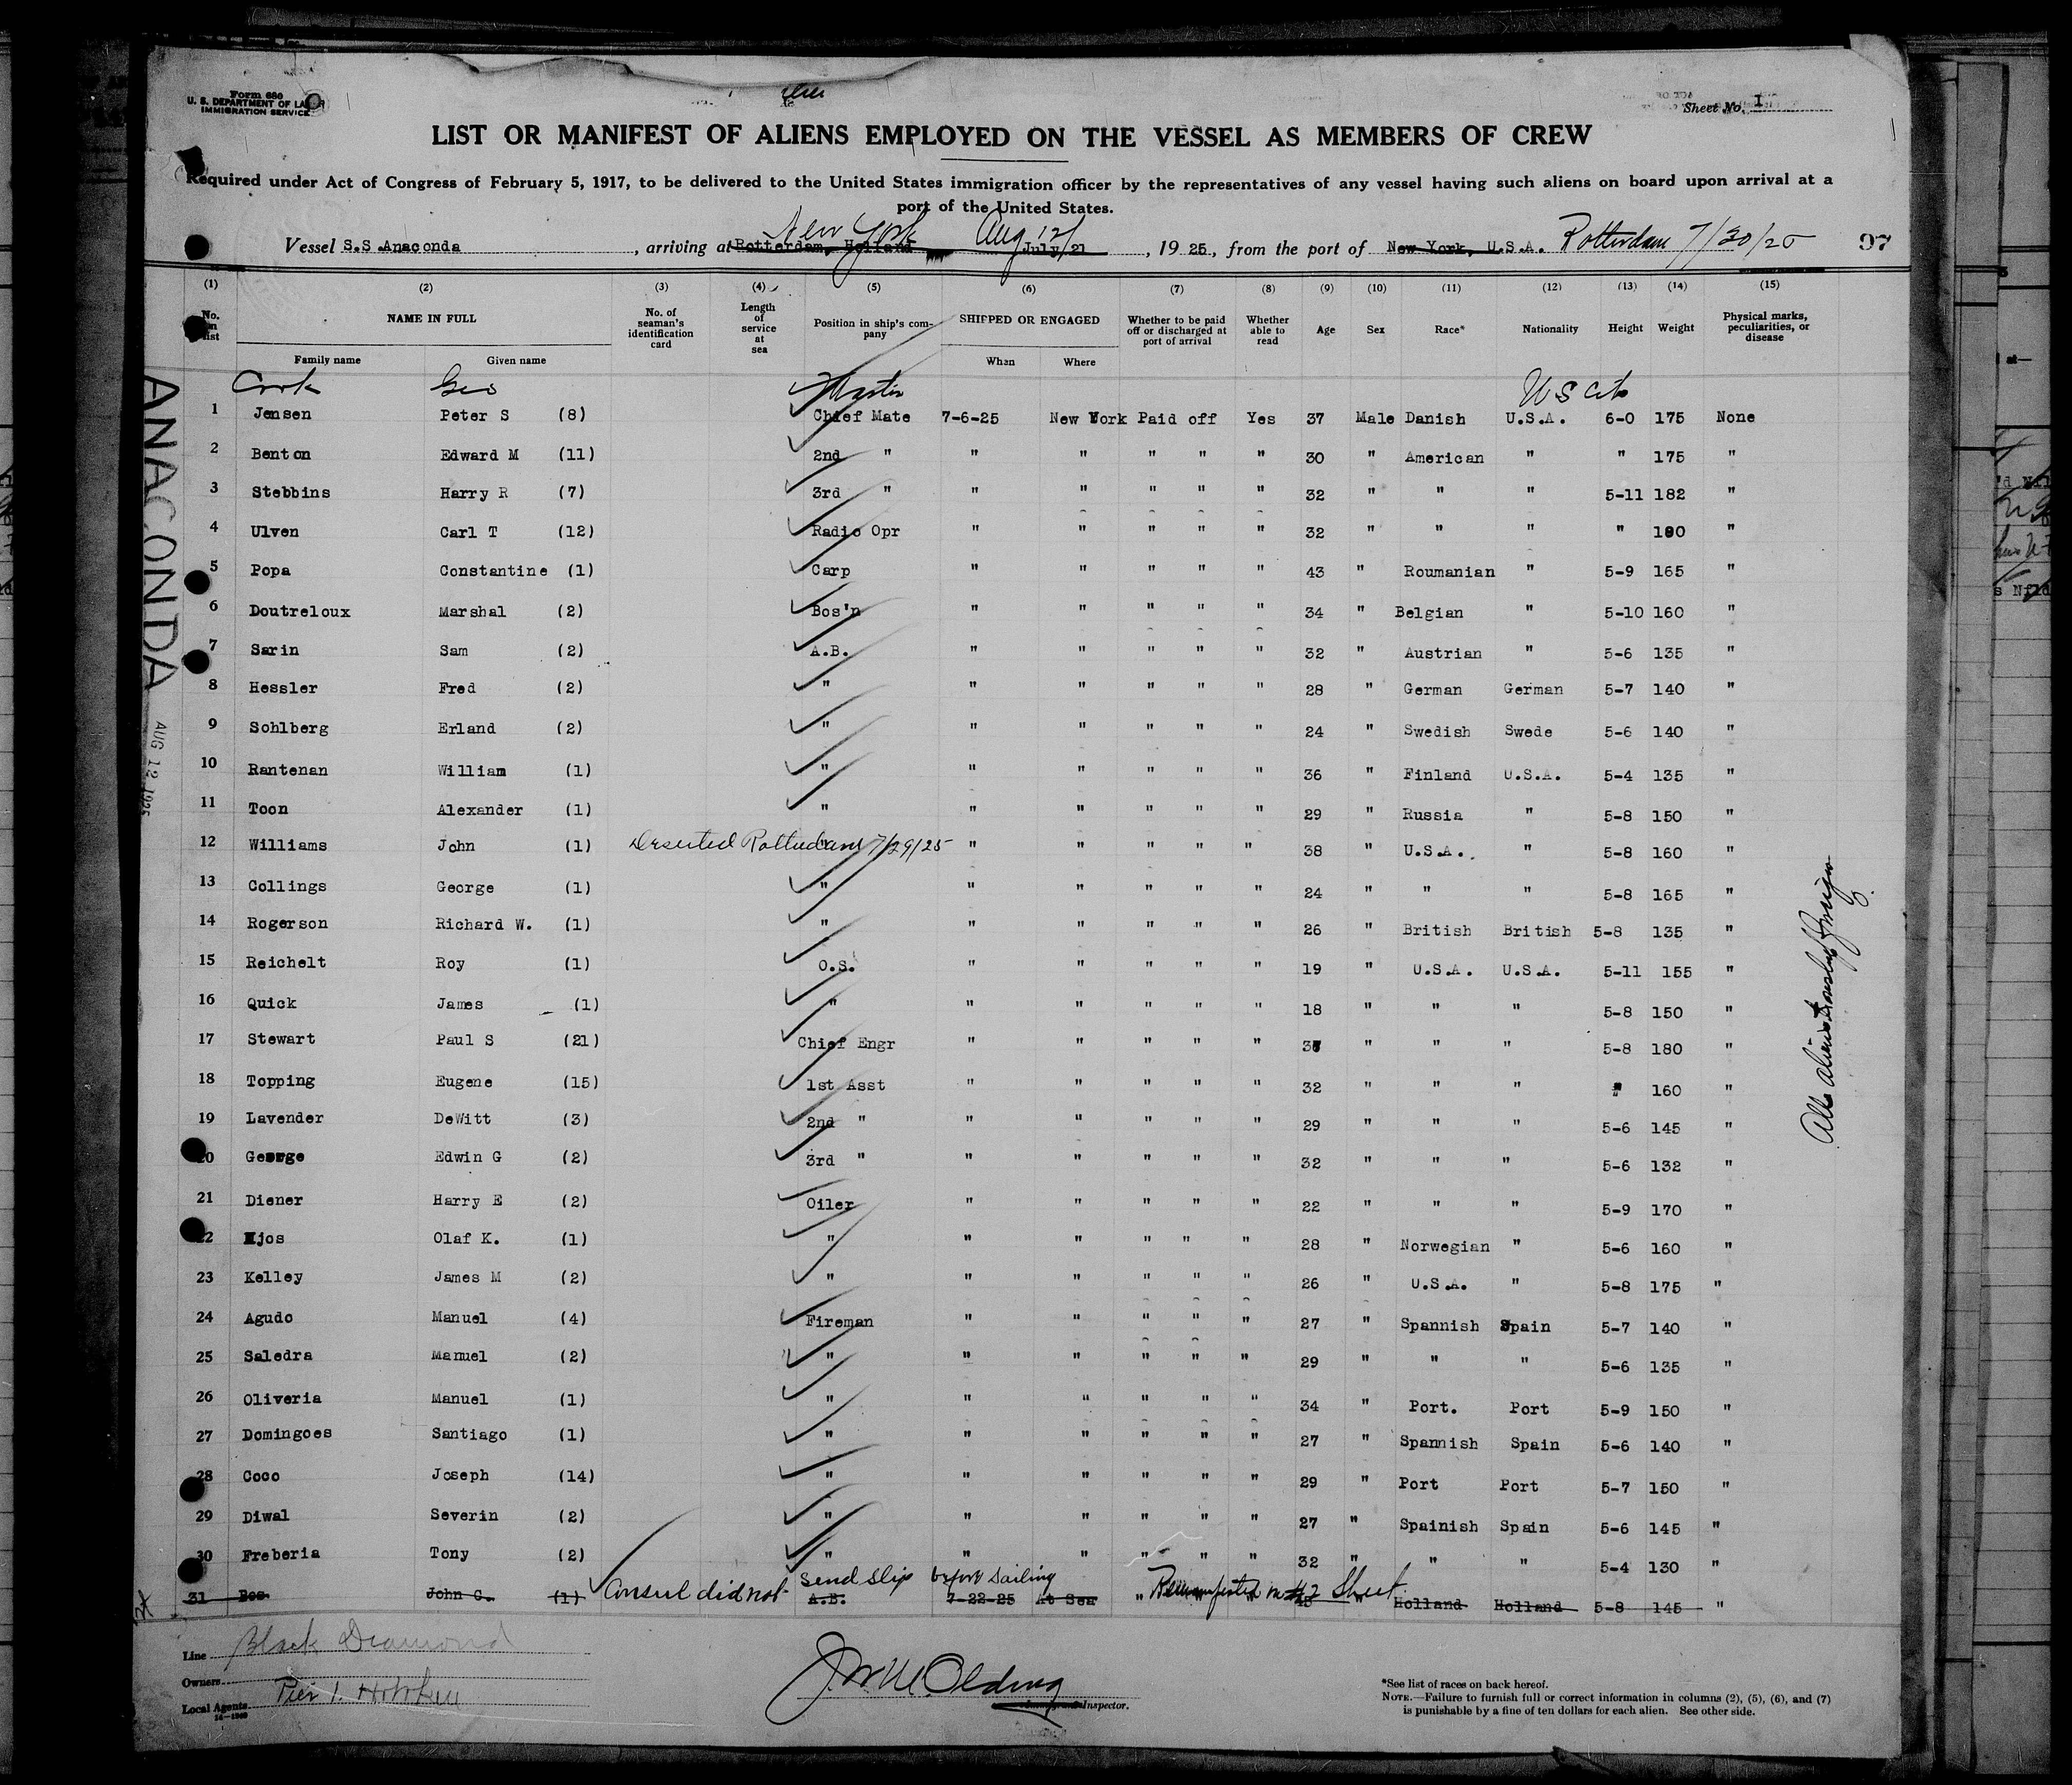 Form 680
U. S. DEPARTMENT OF LABOR
IMMIGRATION SERVICE
Sheet No. 1
LIST OR MANIFEST OF ALIENS EMPLOYED ON THE VESSEL AS MEMBERS OF CREW
Required under Act of Congress of February 5, 1917, to be delivered to the United States immigration officer by the representatives of any vessel having such aliens on board upon arrival at a
port of the United States.
New York Aug 12/
Vessel S.S.Anaconda, arriving at Rotterdam, Holland July/21, 19 25, from the port of New York, U.S.A. Rotterdam 7/30/25 97
(1) (2) (3) (4) (5) (6) (7) (8) (9) (10) (11) (12) (13) (14) (15)
No. on list NAME IN FULL Family name Given name No. of seaman's identification card Length of service at sea Position in ship's company SHIPPED OR ENGAGED When Where Whether to be paid off or discharged at port of arrival Whether able to read Age Sex Race* Nationality Height Weight Physical marks, peculiarities, or disease
Cook Geo Master U S Cit
1 Jensen Peter S (8) Chief Mate 7-6-25 New York Paid off Yes 37 Male Danish U.S.A. 6-0 175 None
2 Benton Edward M (11) 2nd " " " " " " 30 " American " " 175 "
3 Stebbins Harry R (7) 3rd " " " " " " 32 " " " 5-11 182 "
4 Ulven Carl T (12) Radio Opr " " " " " 32 " " " " 190 "
5 Popa Constantine (1) Carp " " " " " 43 " Roumanian " 5-9 165 "
6 Doutreloux Marshal (2) Bos'n " " " " " 34 " Belgian " 5-10 160 "
7 Sarin Sam (2) A.B. " " " " " 32 " Austrian " 5-6 135 "
8 Hessler Fred (2) " " " " " " 28 " German German 5-7 140 "
9 Sohlberg Erland (2) " " " " " " 24 " Swedish Swede 5-6 140 "
10 Rantenan William (1) " " " " " " 36 " Finland U.S.A. 5-4 135 "
11 Toon Alexander (1) " " " " " " 29 " Russia " 5-8 150 "
12 Williams John (1) Deserted Rotterdam 7/29/25 " " " " " " 38 " U.S.A. " 5-8 160 "
13 Collings George (1) " " " " " " 24 " " " 5-8 165 "
14 Rogerson Richard W. (1) " " " " " " 26 " British British 5-8 135 "
15 Reichelt Roy (1) O.S. " " " " " 19 " U.S.A. U.S.A. 5-11 155 "
16 Quick James (1) " " " " " " 18 " " " 5-8 150 "
17 Stewart Paul S (21) Chief Engr " " " " " 37 " " " 5-8 180 "
18 Topping Eugene (15) 1st Asst " " " " " 32 " " " " 160 "
19 Lavender DeWitt (3) 2nd " " " " " " 29 " " " 5-6 145 "
20 George Edwin G (2) 3rd " " " " " " 32 " " " 5-6 132 "
21 Diener Harry E (2) Oiler " " " " " 22 " " " 5-9 170 "
22 Kjos Olaf K. (1) " " " " " " 28 " Norwegian " 5-6 160 "
23 Kelley James M (2) " " " " " " 26 " U.S.A. " 5-8 175 "
24 Agudo Manuel (4) Fireman " " " " " 27 " Spannish Spain 5-7 140 "
25 Saledra Manuel (2) " " " " " " 29 " " " 5-6 135 "
26 Oliveria Manuel (1) " " " " " " 34 " Port. Port 5-9 150 "
27 Domingoes Santiago (1) " " " " " " 27 " Spannish Spain 5-6 140 "
28 Coco Joseph (14) " " " " " " 29 " Port Port 5-7 150 "
29 Diwal Severin (2) " " " " " " 27 " Spainish Spain 5-6 145 "
30 Freberia Tony (2) " " " " " " 32 " " " 5-4 130 "
31 Bos John C. (1) Consul did not send slip before sailing A.B. 7-22-25 At Sea " Remanifested on #2 Sheet Holland Holland 5-8 145 "
ANACONDA
AUG 12 1925
Line Black Diamond
Owners
Local Agents Pier 1. Hoboken
16—1960
Inspector.
*See list of races on back hereof.
NOTE.—Failure to furnish full or correct information in columns (2), (5), (6), and (7)
is punishable by a fine of ten dollars for each alien. See other side.